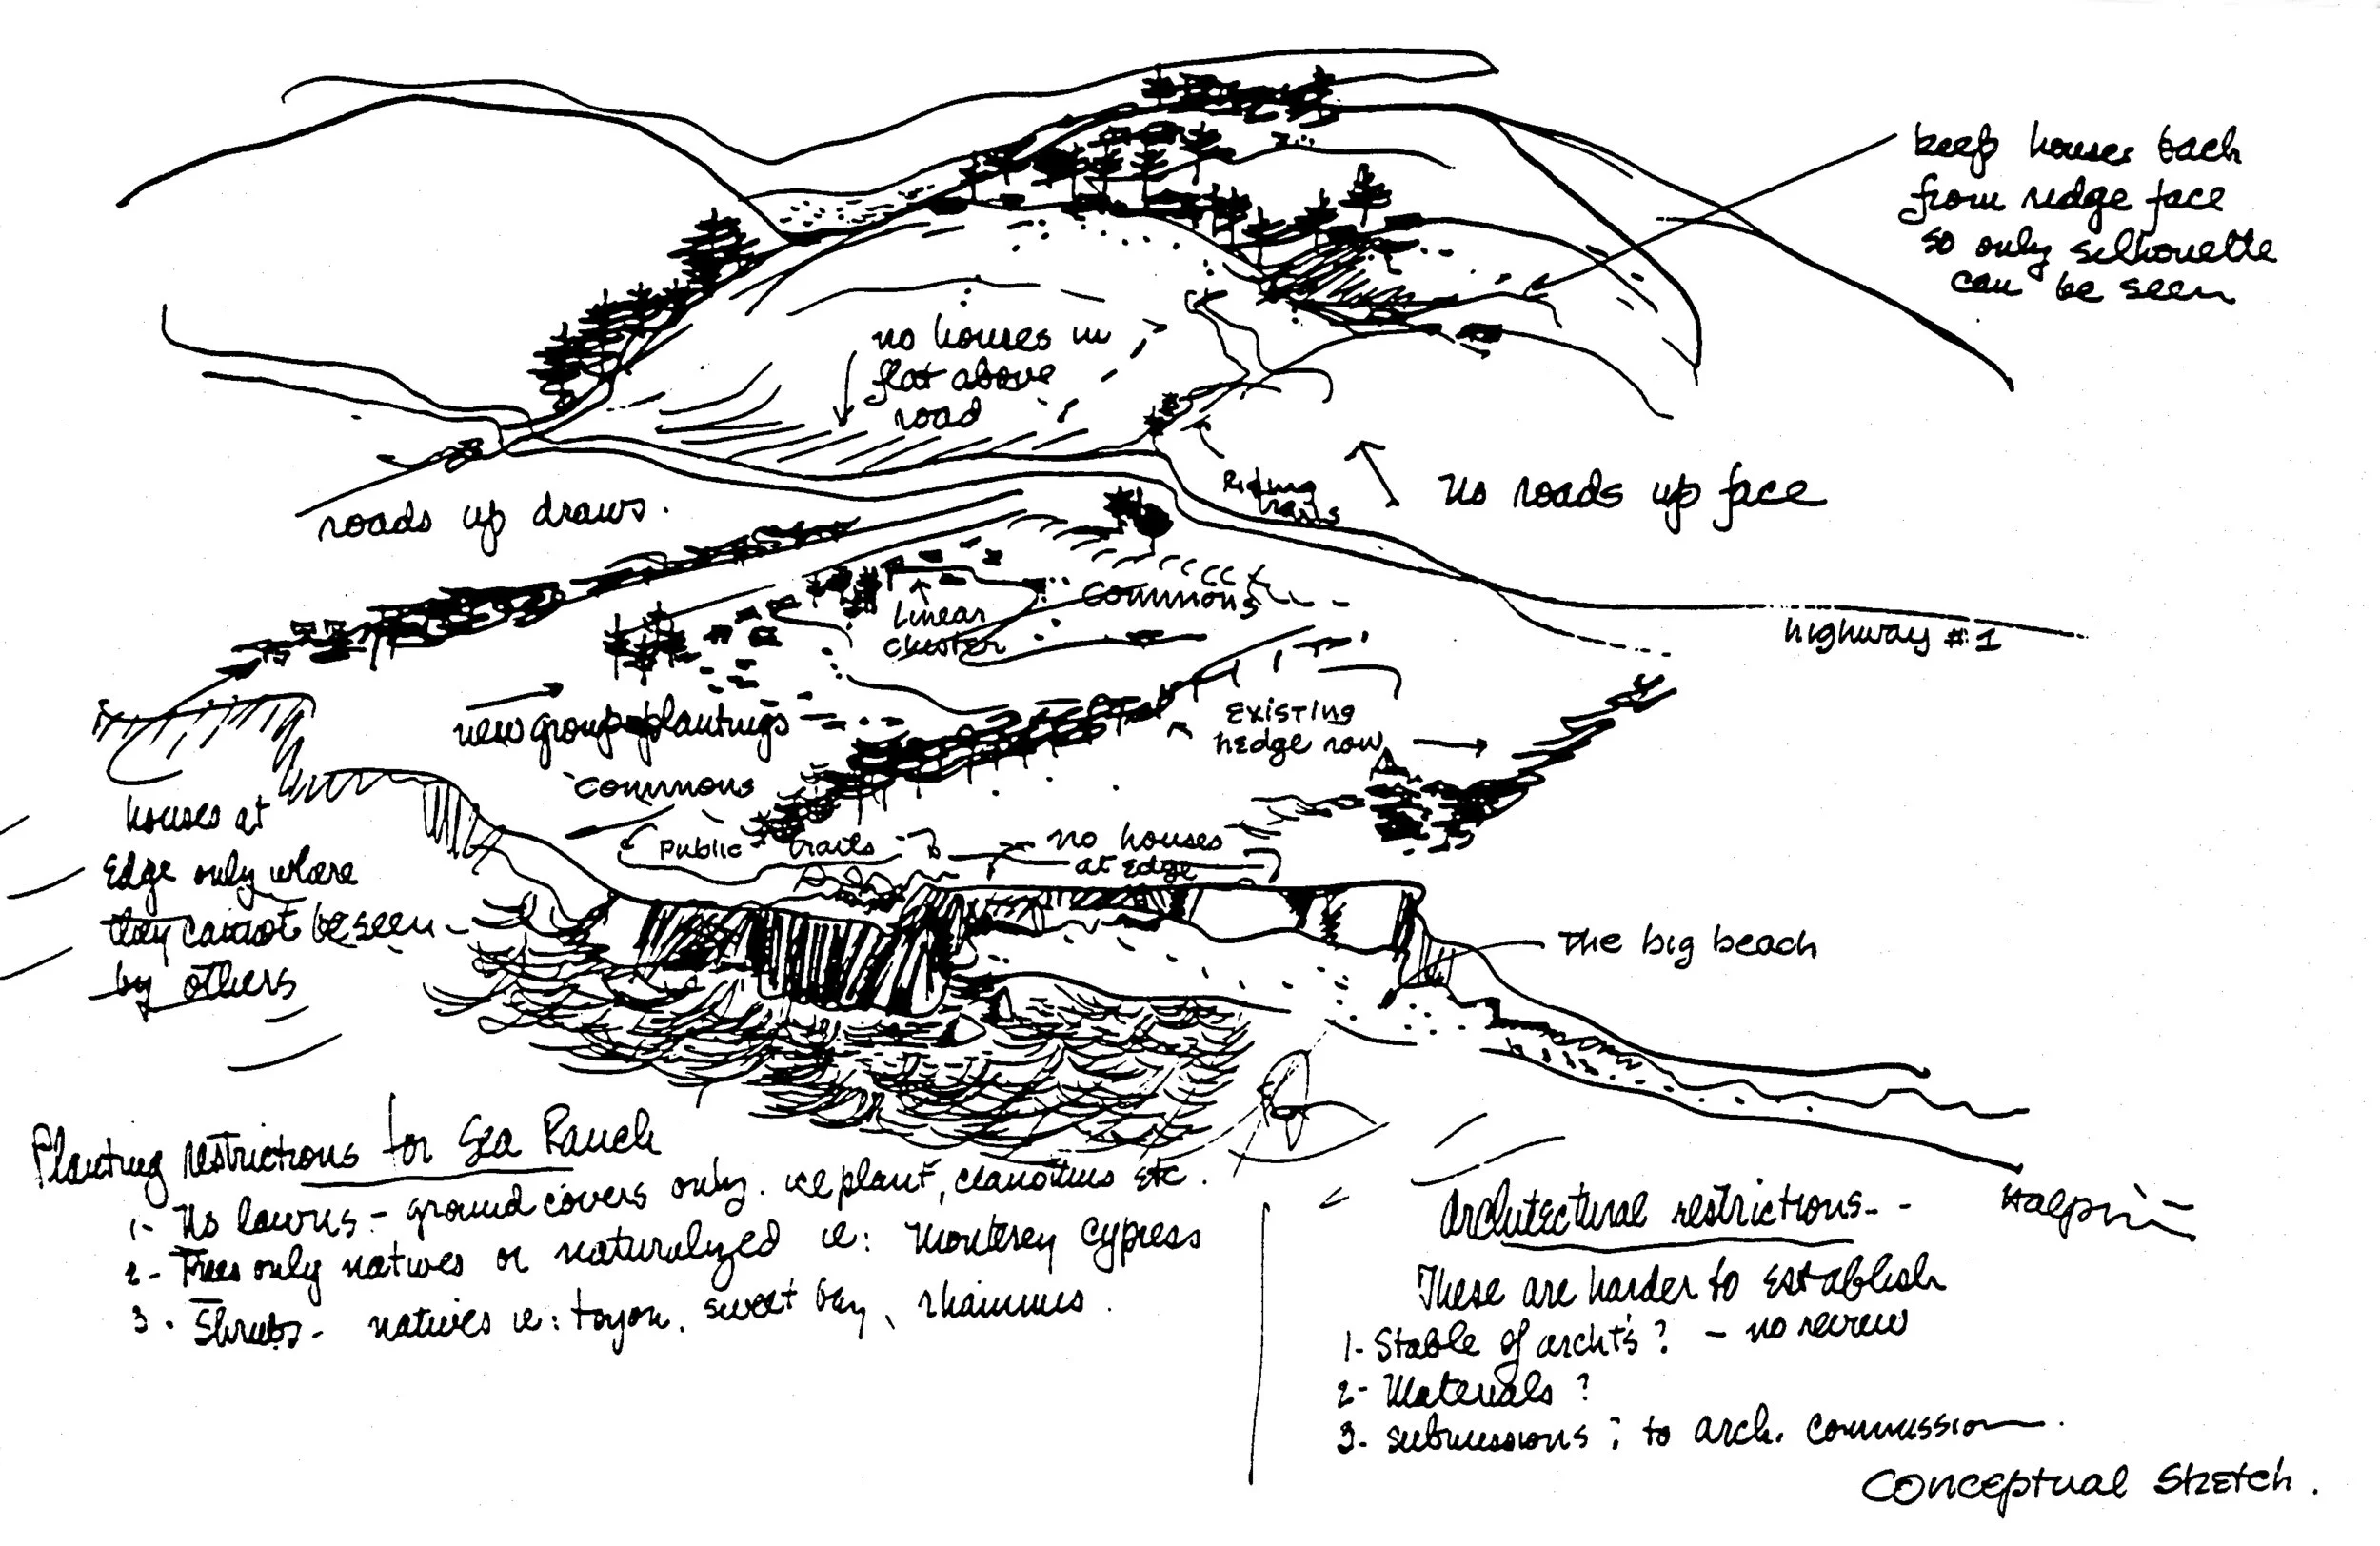 keep houses back
from ridge face
so only silhouette
can be seen
no houses in
flat above
road
Riding
trails
No roads up face
roads up draws.
Linear
cluster
commons
highway #1
new group plantings
commons
Existing
hedge row
houses at
Edge only where
they cannot be seen
by others
Public trails
no houses
at edge
The big beach
Planting restrictions for Sea Ranch
1- No lawns - ground covers only. ice plant, ceanothus etc.
2- Trees only natives or naturalized ie: Monterey Cypress
3. Shrubs - natives ie: toyon, sweet bay, rhamnus.
Halprin
Architectural restrictions--
These are harder to establish
1- Stable of archts? - no review
2- Materials?
3- submissions: to arch. commission.
Conceptual Sketch.